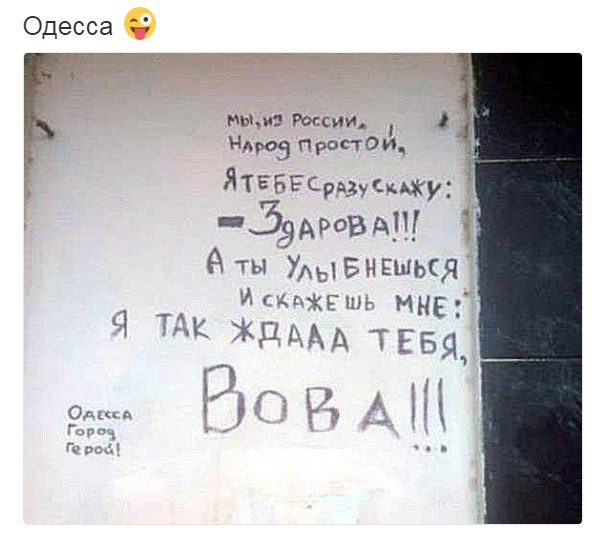 Одесса 😜
мы, из России,
Народ простой,
Я тебе сразу скажу:
- Здарова!!!
А ты улыбнешься
и скажешь мне:
Я так ждааа тебя,
Вова!!!
Одесса
Город
Герой!